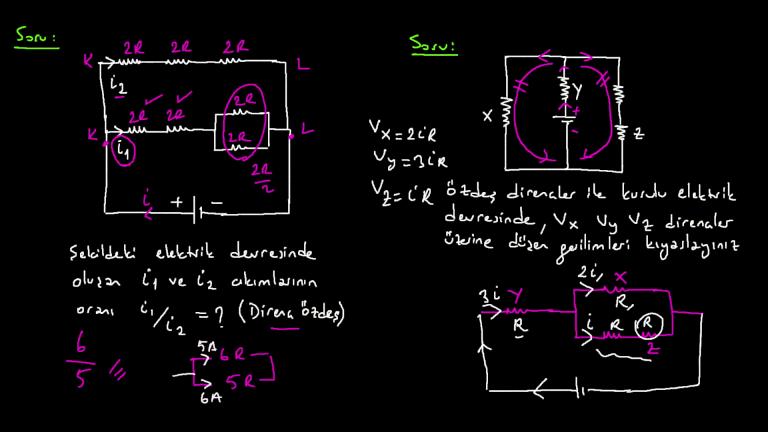 Soru:
2R 2R 2R
K L
i2
2R 2R 2R
K L
i1 2R
2R/2
i + -
Şekildeki elektrik devresinde
oluşan i1 ve i2 akımlarının
oranı i1/i2 = ? (Direnç özdeş)
6/5
5A 6R
5R
6A
Soru:
X Y + - Z
Vx = 2iR
Vy = 3iR
Vz = iR özdeş dirençler ile kurulu elektrik
devresinde, Vx Vy Vz dirençler
üzerine düşen gerilimleri kıyaslayınız
2i, X
3i Y R,
R i R R
Z